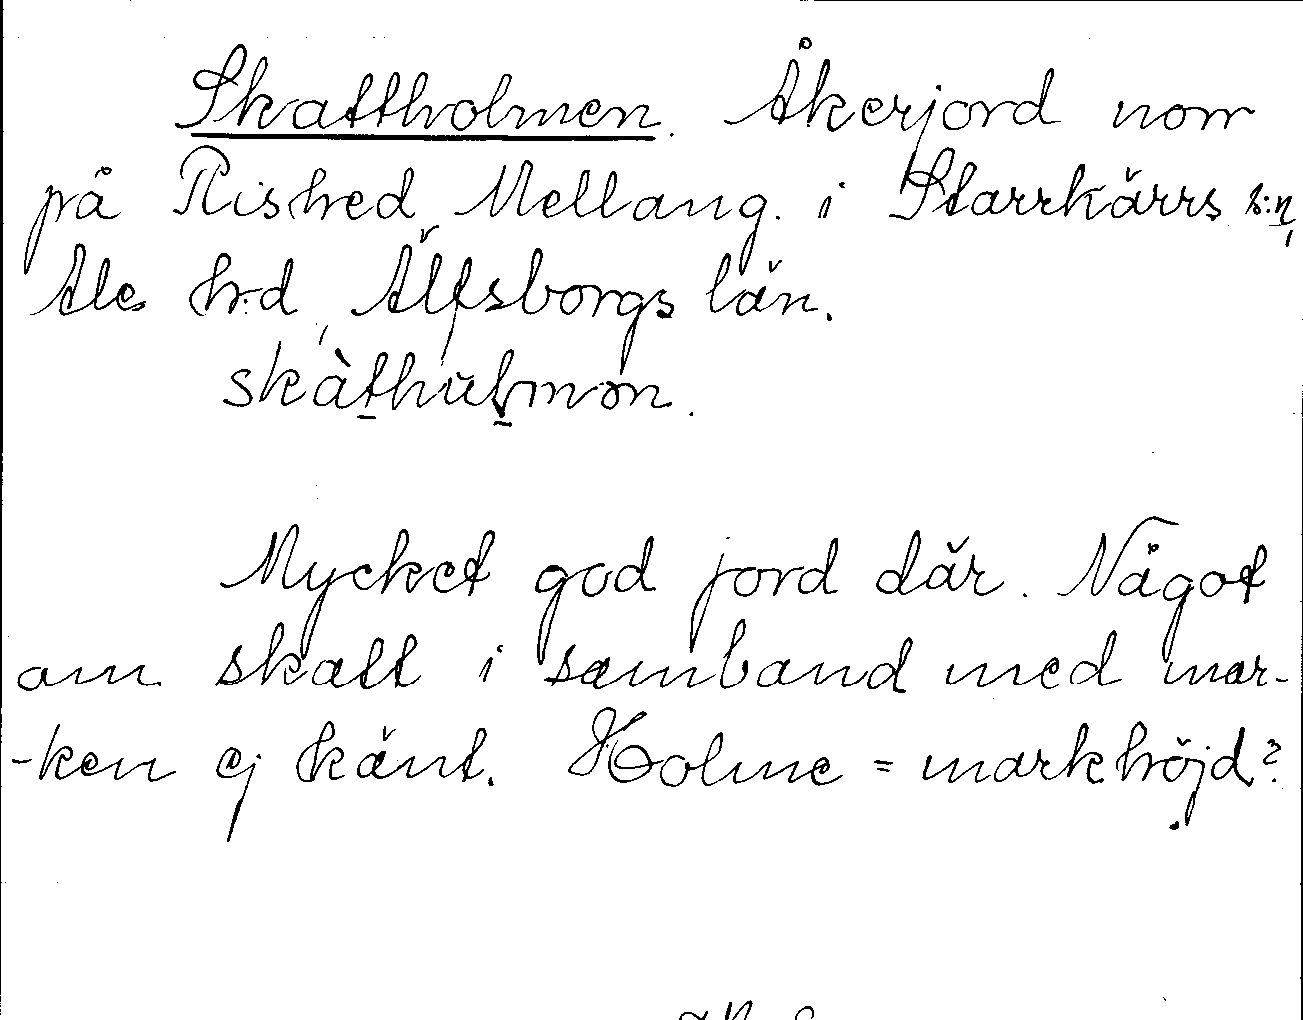 Skattholmen. Åkerjord norr
på Rished Mellang. i Starrkärrs s:n,
Ale h:d, Älfsborgs län.
skàthulmən.
Mycket god jord där. Något
om skatt i samband med mar-
-ken ej känt. Holme = markhöjd?